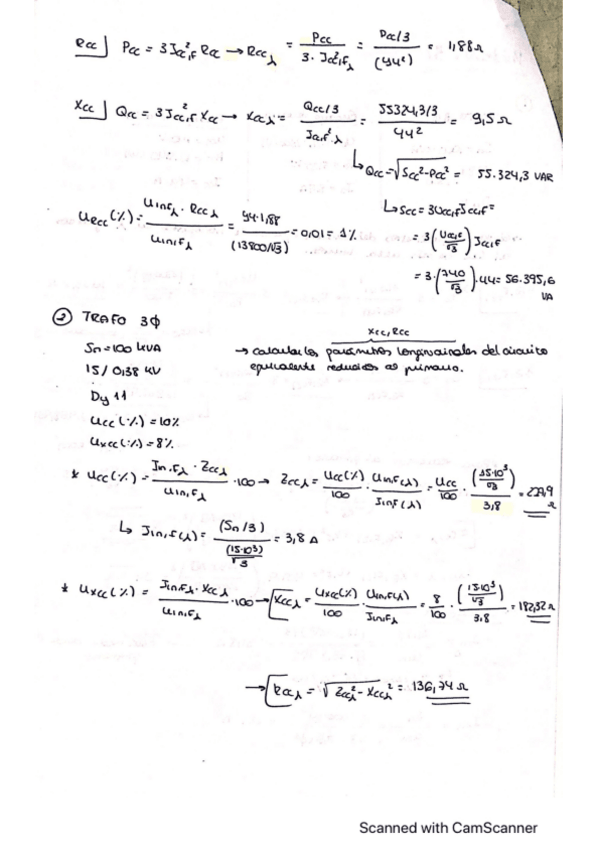 Rcc] Pcc = 3 Jcc,f² Rcc → Rccλ = Pcc / 3·Jcc²,fλ = Pcc/3 / (44²) = 1,88 Ω
Xcc] Qcc = 3 Jcc,f² Xcc → Xccλ = Qcc/3 / Jcc,f²λ = 55324,3/3 / 44² = 9,5 Ω
↳ Qcc = √Scc²-Pcc² = 55.324,3 VAR
↳ Scc = 3Ucc,f Jcc,f =
URcc (%) = U1nfλ · Rccλ / U1n,fλ = 44·1,88 / (13800/√3) = 0,01 = 1%
= 3 (Ucc,c/√3) Jcc,f
= 3·(740/√3)·44 = 56.395,6 VA
② TRAFO 3Φ
Xcc, Rcc
Sn = 100 kVA
→ calcular los parámetros longitudinales del circuito
15 / 0,38 kV
equivalente reducidos al primario.
Dy 11
Ucc (%) = 10%
Uxcc (%) = 8%
* Ucc (%) = J1n,fλ · Zccλ / U1n,fλ · 100 → Zccλ = Ucc(%)/100 · U1n,f(λ)/J1nf(λ) = Ucc/100 · (15·10³/√3)/3,8 = 227,9 Ω
↳ J1n,f(λ) = (Sn/3) / (15·10³)/√3 = 3,8 A
* Uxcc (%) = J1n,fλ · Xccλ / U1n,fλ · 100 → Xccλ = Uxcc(%)/100 · U1n,f(λ)/J1n,fλ = 8/100 · (15·10³/√3)/3,8 = 182,32 Ω
→ Rccλ = √Zccλ² - Xccλ² = 136,74 Ω
Scanned with CamScanner